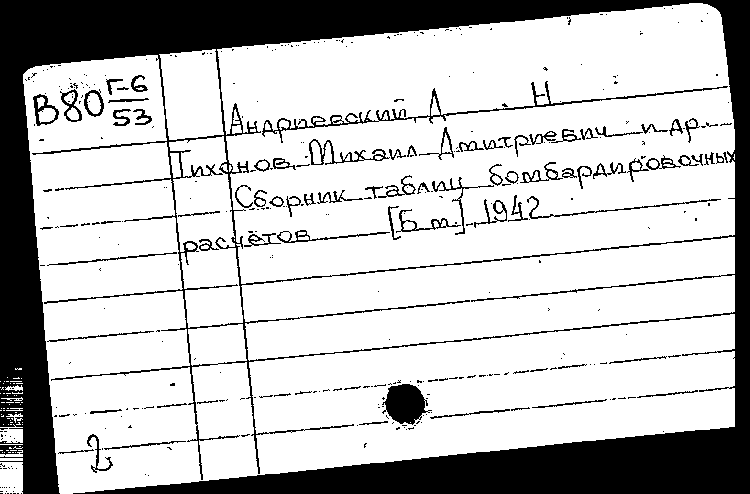 В80 Г-6/53
Андриевский, Д. Н
Тихонов, Михаил Дмитриевич и др.
Сборник таблиц бомбардировочных
расчётов [Б. м.], 1942.
2